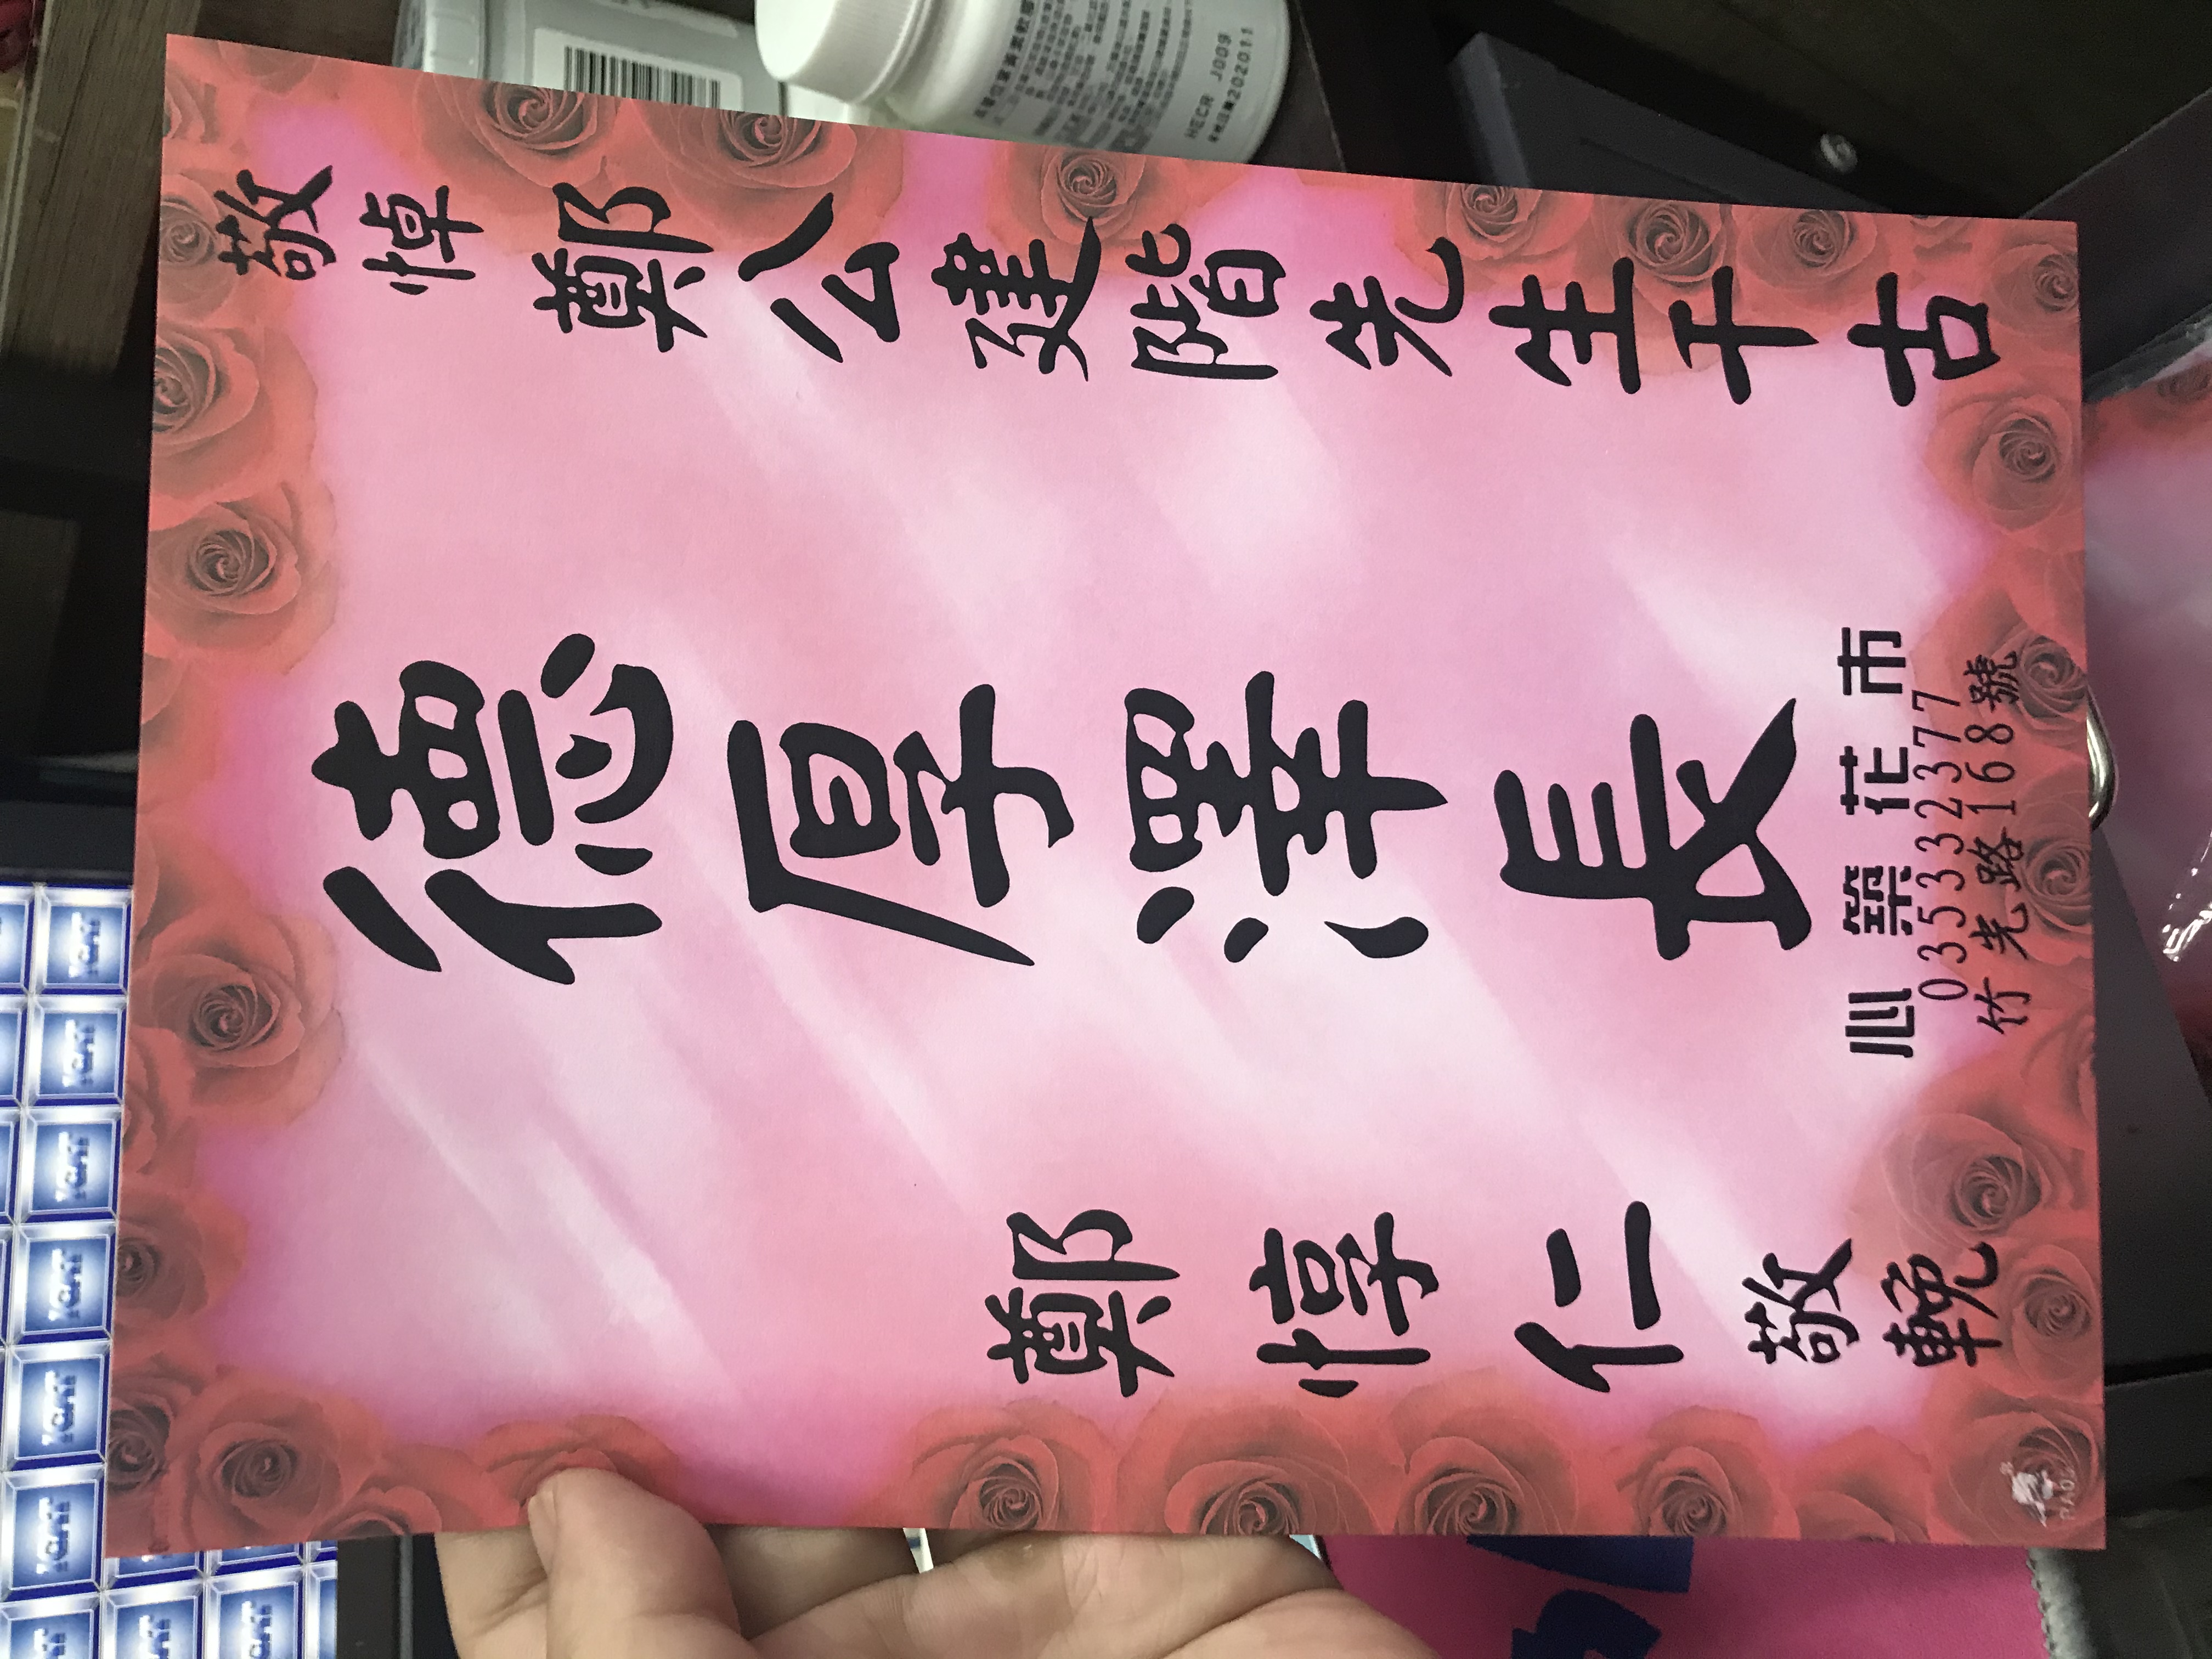 敬悼
鄭公建階先生千古
德厚澤長
鄭惇仁
敬輓
心築花市
035332377
竹光路168號
HECR J009
202011